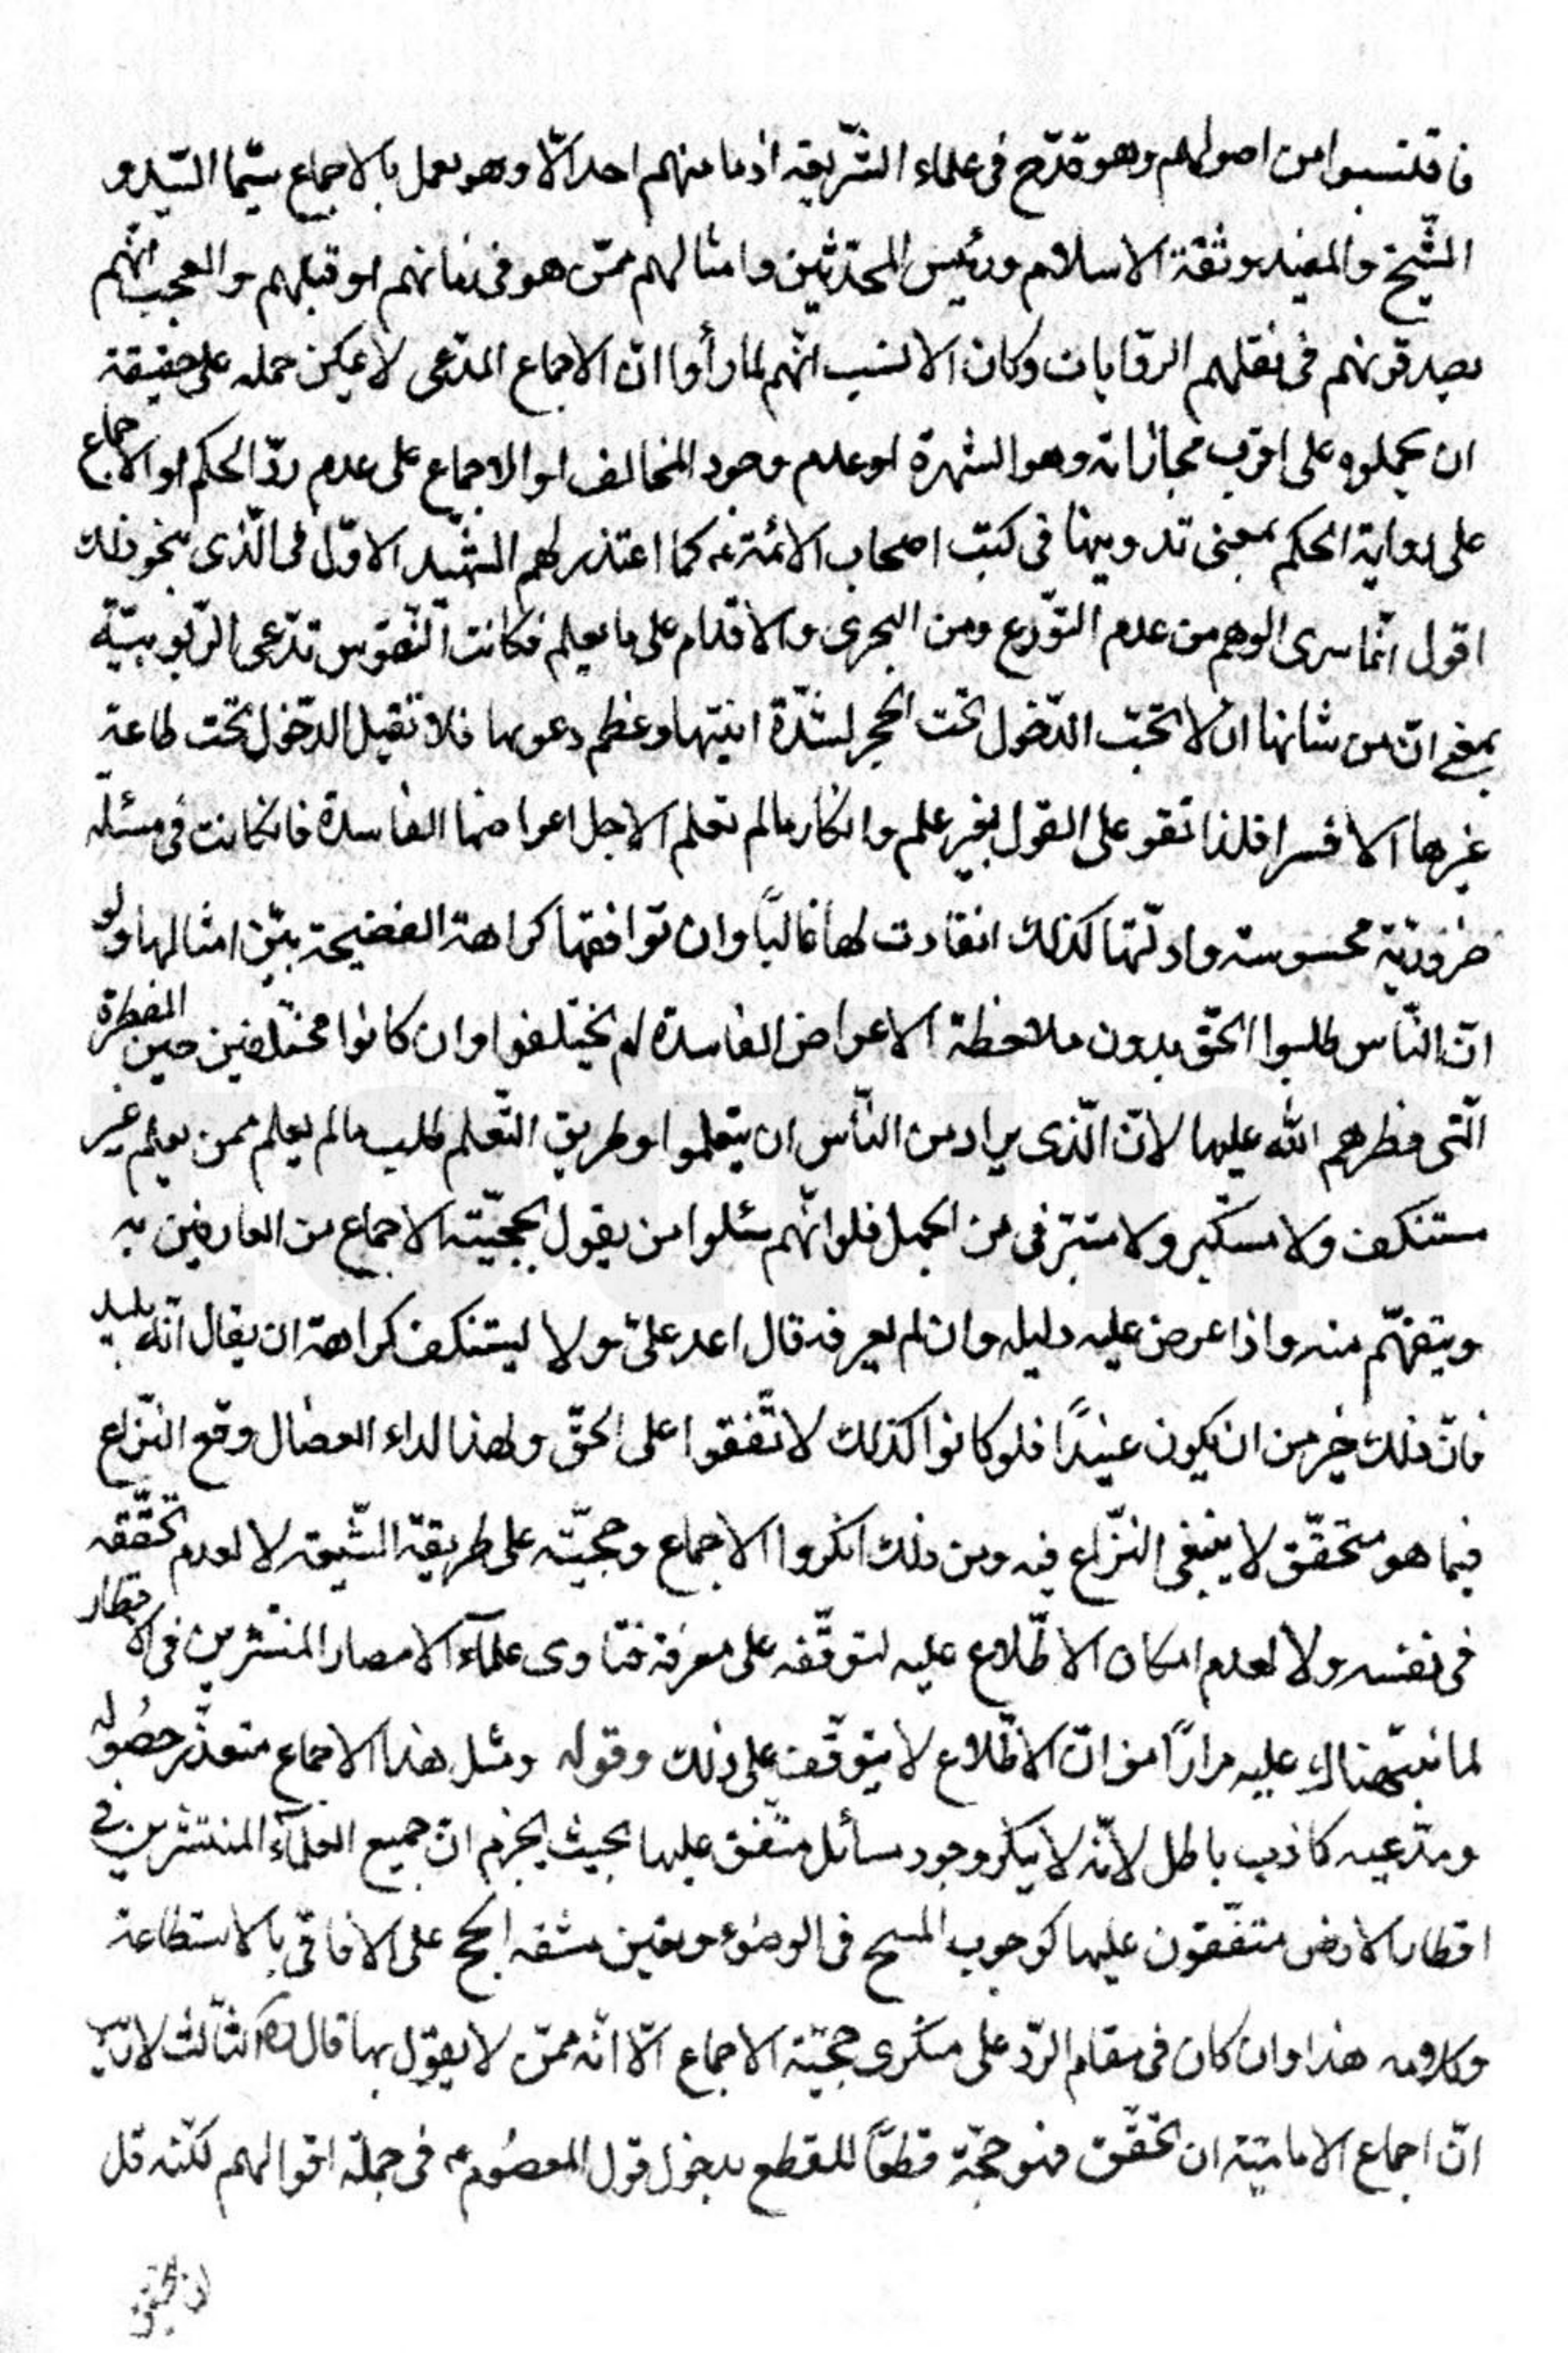 فاقتسبوا من اصولهم وهو قدّح فى علماء الشّريعة اذ ما منهم احد الّا وهو يعمل بالاجماع سيّما السّيد و
الشّيخ والمفيد وثقة الاسلام ورئيس المحدّثين وامثالهم ممّن هو فى زمانهم او قبلهم والعجب انّهم
يصدقونهم فى نقلهم الروايات وكان الانسب انّهم لما رأوا انّ الاجماع المدّعى لا يمكن حمله على حقيقة
ان يحملوه على اقرب مجازاته وهو الشهرة او عدم وجود المخالف او الاجماع على عدم ردّ الحكم او الاجماع
على رواية الحكم بمعنى تدوينها فى كتب اصحاب الائمة ع كما اعتذر لهم الشّهيد الاوّل فى الّذى نحو ذلك
اقول انّما سرى الوهم من عدم التّورع ومن التجرى والاقدام على ما يعلم فكانت النّفوس تدّعى الرّبوبيّة
بمعنى انّ من شانها ان لا تحبّ الدّخول تحت الحجر لشدّة انيتها وعظم دعويها فلا تقبل الدّخول تحت طاعة
غيرها الا قسرا فلذا تقو على القول بغير علم وانكار ما لم تعلم الاجل اعراضها الفاسدة فان كانت فى مسئلة
ضروريّة محسوسة وادلّتها كذلك انقادت لها غالبًا وان توافقها كراهة الفضيحة بين امثالها ولو
انّ النّاس طلبوا الحقّ بدون ملاحظة الاعراض الفاسدة لم يختلفوا وان كانوا مختلفين حين الفطرة
الّتى فطرهم الله عليها لانّ الّذى يراد من النّاس ان يتعلموا وطريق التّعلم طلب ما لم يعلم ممن يعلم غير
مستنكف ولا مستكبر ولا متبرّ فى من الجهل فلو انّهم سئلوا من يقول بحجيّة الاجماع من العارفين به
ويتفهّم منه واذا عرض عليه دليله وان لم يعرفه قال اعد علىّ ولا يستنكف كراهة ان يقال انّه بليد
فانّ ذلك خير من ان يكون عنيدًا فلو كانوا كذلك لاتّفقوا على الحقّ ولهذا لداء العضال وقع النّزاع
فيما هو متحقّق لا ينبغى النّزاع فيه ومن ذلك انكروا الاجماع وحجيّته على طريقة الشّيعة لا لعدم تحقّقه
فى نفسه ولا لعدم امكان الاطّلاع عليه لتوقّفه على معرفة فتاوى علمآء الامصار المنتشرين فى الاقطار
لما نبّهناك عليه مرارًا من انّ الاطّلاع لا يتوقّف على ذلك وقوله ومثل هذا الاجماع متعذّر حصوله
ومدّعيه كاذب باطل لانّه لا ينكر وجود مسائل متّفق عليها بحيث يجزم انّ جميع العلمآء المنتشرين فى
اقطار الارض متفّقون عليها كوجوب المسح فى الوضوء وتعين مشقه الحج على الافاقى بالاستطاعة
وكلامه هذا وان كان فى مقام الرّد على منكرى حجّية الاجماع الّا انّه ممّن لا يقول بها قال ره الثّالث لا ريب
انّ اجماع الاماميّة ان تحقّق فهو حجّة قطعًا للقطع بدخول قول المعصوم ع فى جملة اقوالهم لكنّه قل
ان يتحقق